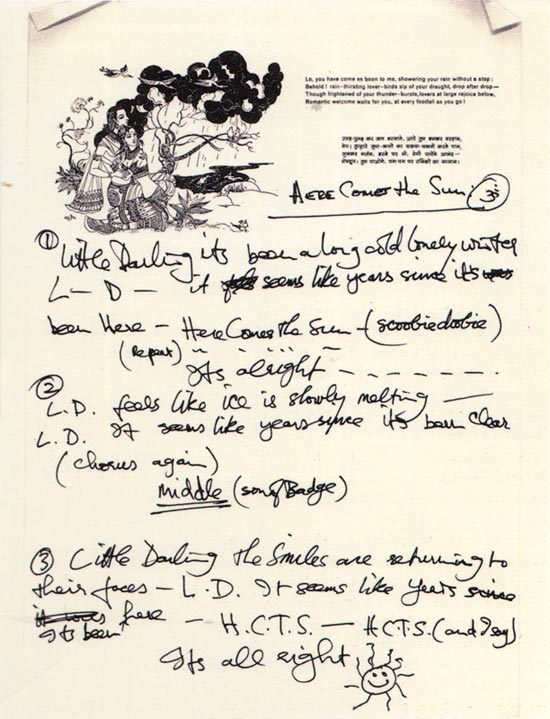 Lo, you have come as boon to me, showering your rain without a stop:
Behold! rain-thirsting lover-birds sip of your draught, drop after drop—
Though frightened of your thunder-bursts, lovers at large rejoice below,
Romantic welcome waits for you, at every footfall as you go!
Here Comes the Sun. ॐ
① Little Darling its been a long cold lonely winter
L — D — it seems like years since its
been Here — Here Comes the Sun — (scoobie doobie)
(Repeat) " " " "
Its alright — — — — — — —.
② L.D. feels like ice is slowly melting —
L.D. It seems like years since its been clear
(chorus again)
Middle (son of Badge)
③ Little Darling the Smiles are returning to
their faces — L.D. It seems like years since
its been here — H.C.T.S. — H.C.T.S. (and I say)
Its all right